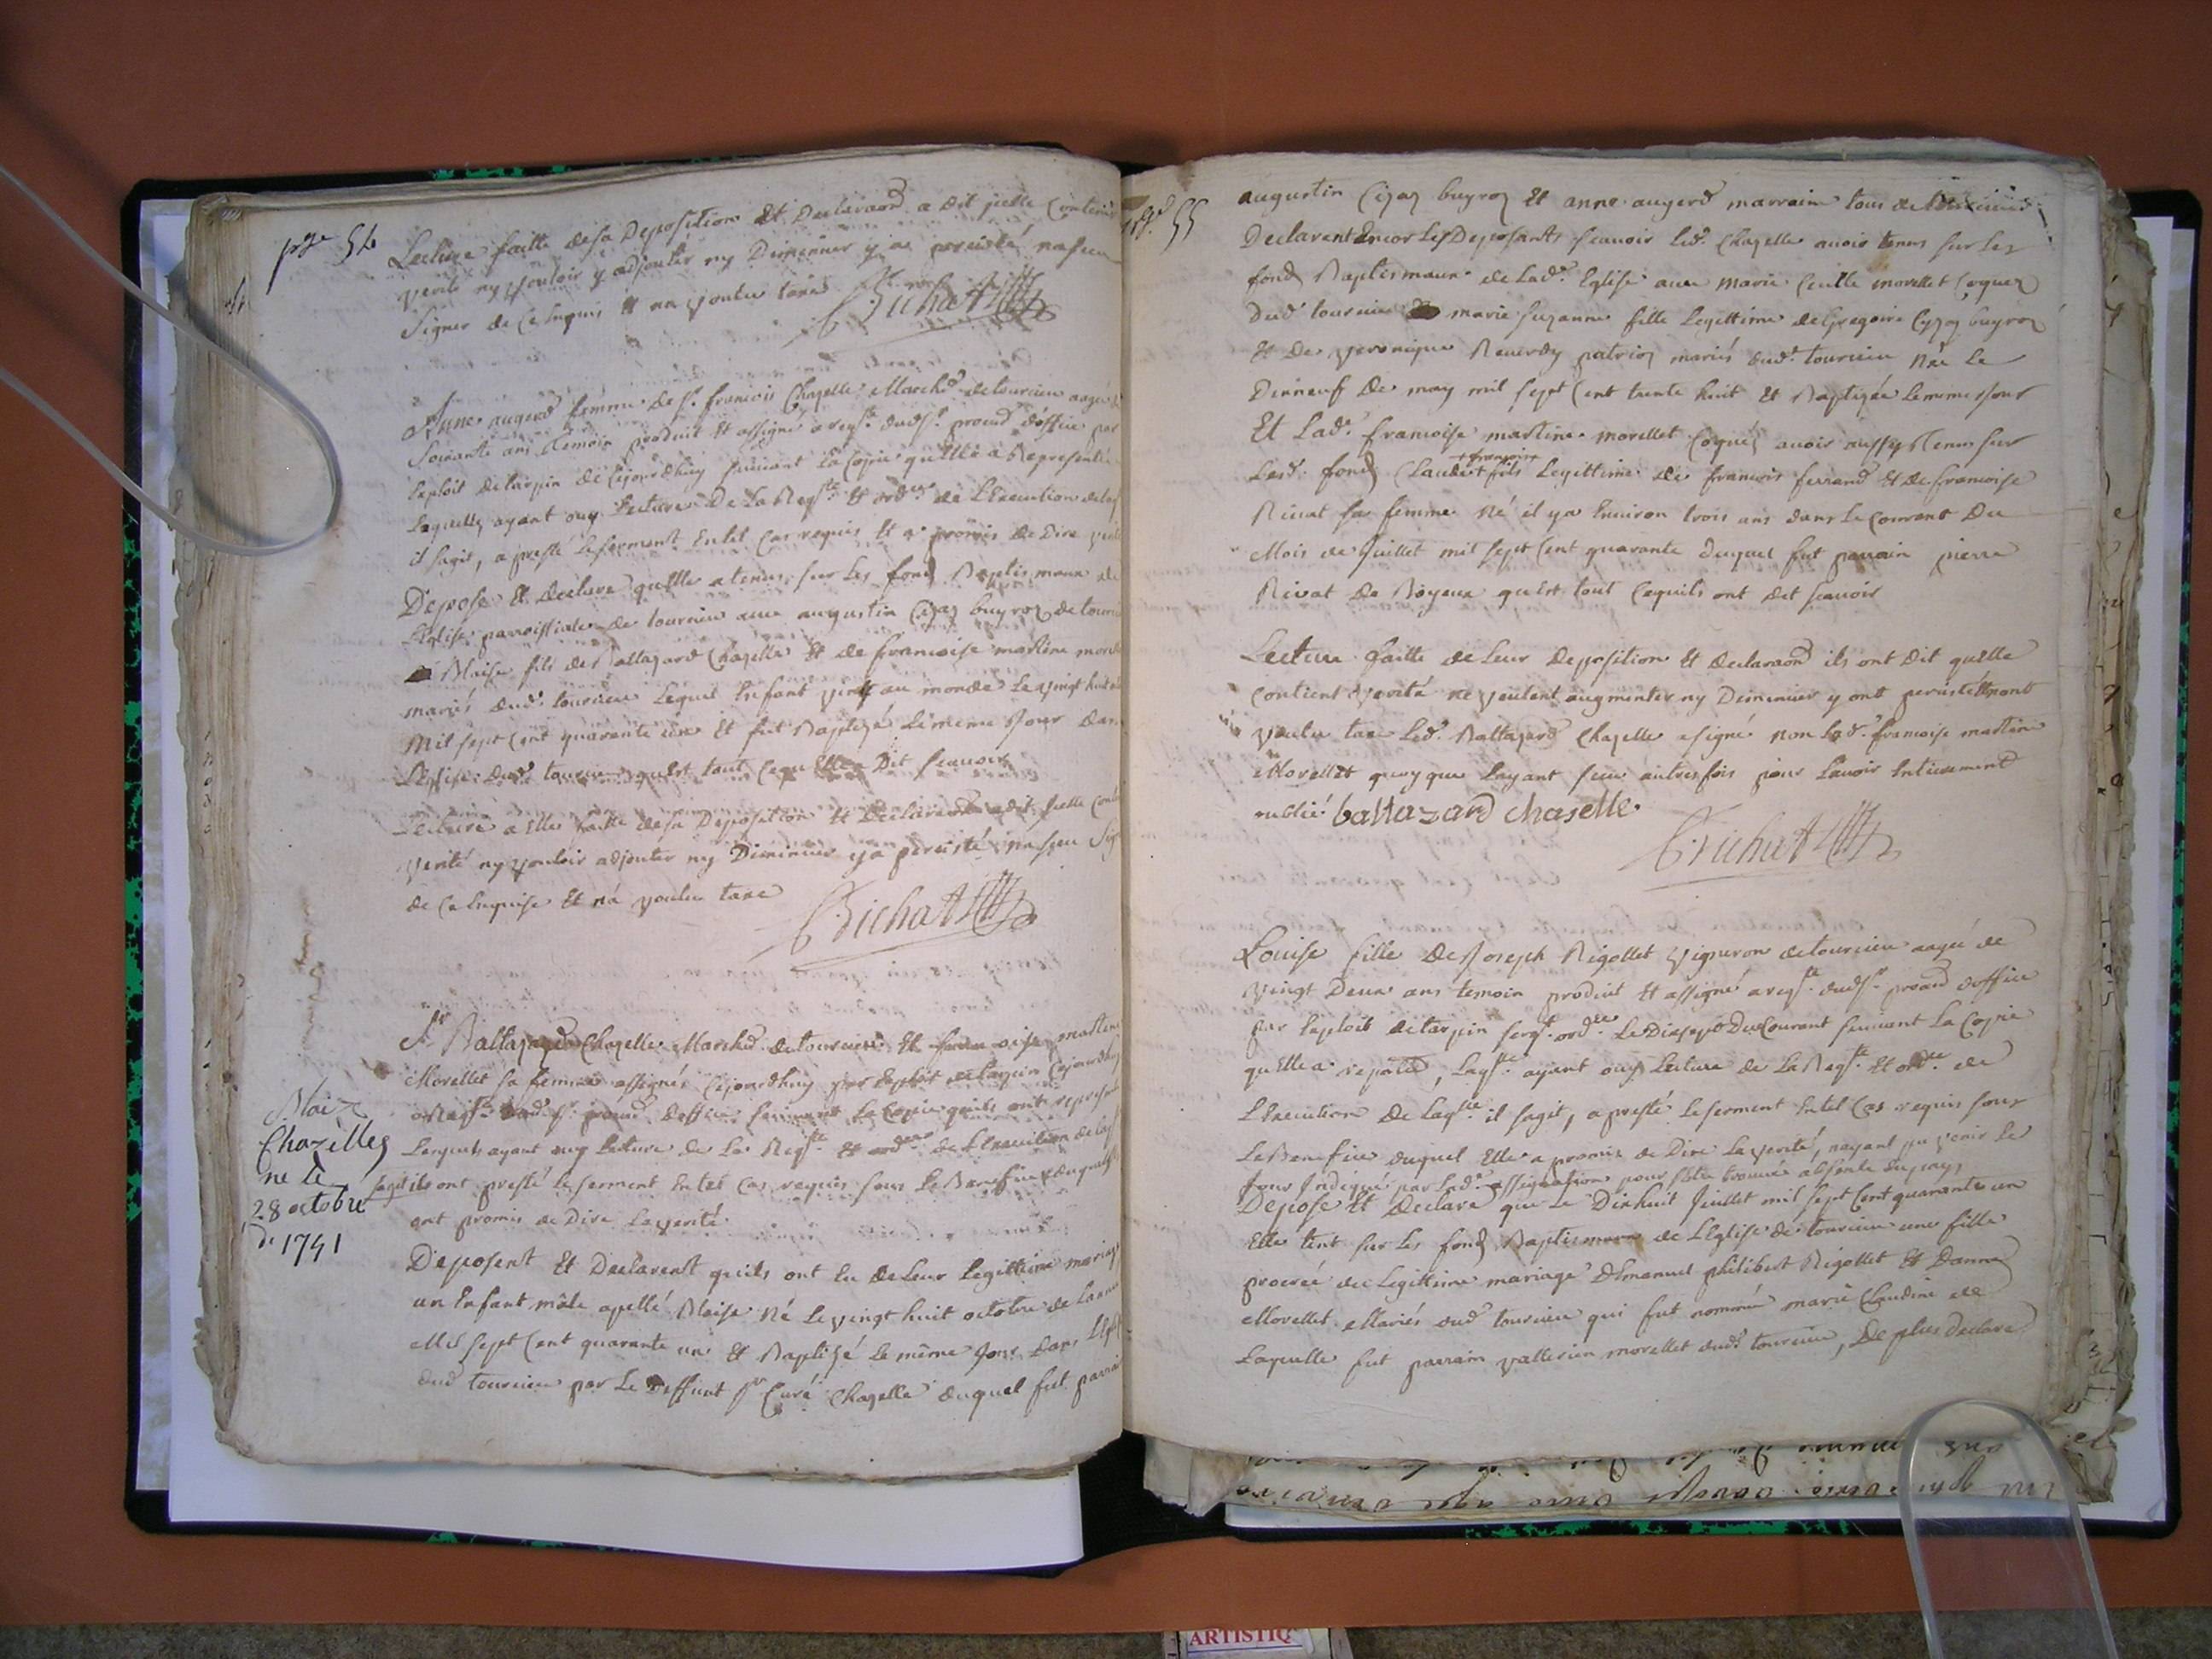 pge 54
Lecture faitte de sa Deposition Et Declaraon a dit quelle Contient
verité ny vouloir y adjouter ny Diminuer y a persisté na sceu
Signer de ce Enquis Et na voulu taxe
Brichat
Anne augerd femme de sr. francois Chazelle Marchd de tourcieu aagée de
Soixante ans temoin produit Et assigné a reqte. dudsr. procur d'office par
Exploit de tarpin de Cejourdhuy suivant la Copie qu'Elle a Representée
Laquelle ayant ouy Lecture De La Reqte Et ordce de L'Execution de laqlle
il sagit, a presté le serment En tel Cas requis Et a promis De Dire verité
Depose Et declare qu'Elle a tenus sur Les fonds Baptismaux de
L'Eglise parroissiale de tourcieu avec augustin Cizaz buyroz de tourcieu
Blaise fils de Baltazard Chazelle Et de francoise martine morellet
mariés dud. tourcieu Lequel Enfant vint au monde Le vingt huit
Mil sept Cent quarante un Et fut Baptizé le meme Jour dans
L'Eglise dud. tourcieu qu'Est tout Ce qu'Elle a Dit scavoir
Lecture a Elle faitte de sa Deposition Et Declaraon a dit quelle Contient
verité ny vouloir adjouter ny Diminuer y a persisté na sceu Signer
de Ce Enquise Et n'a voulu taxe
Brichat
Sr. Baltazard Chazelle Marchd. de tourcieu Et francoise martine
Morellet sa femme assignés Cejourdhuy par Exploit de tarpin Cejourdhuy
a Reqte dudsr. procur d'office suivant La Copie quils ont representé
Lesquels ayant ouy Lecture de La Reqte. Et ordce de L'Execution de laqlle
sagit ils ont presté le serment En tel Cas requis sous Le Benefice duquel ils
ont promis de Dire La verité
Blaize
Chazelles
né le
28 octobre
de 1741
Deposent Et Declarent quils ont Eu de Leur Legittime mariage
un Enfant mâle apellé Blaise Né Le vingt huit octobre de Lannée
Mil sept Cent quarante un Et Baptizé Le même Jour Dans L'Eglise
dud tourcieu par Le deffunt sr Curé Chazelle duquel fut parrain
pge. 55
augustin Cizaz buyroz Et anne augerd marraine tous de tourcieu
Declarent Encor Les Deposants scavoir Led. Chazelle avoir tenus sur Les
fonds Baptismaux de Lade. Eglise avec marie Ceulle morellet Coquez
dud tourcieu marie suzanne fille Legittime de Gregoire Cyzaz buyroz
Et De veronique Reverdy patrioz mariés dud. tourcieu Née Le
Dixneuf De may mil sept Cent trente huit Et Baptizée Le meme Jour
Et Lade. francoise martine morellet Coquéz avoir aussy tenus sur
Lesd. fonds Claude francoise fils Legittime de francois ferrand Et de francoise
Rivat sa femme Né il y a Environ trois ans dans Le Courrent du
Mois de Juillet mil sept Cent quarante duquel fut parrain pierre
Rivat De Boyeux qu'Est tout Ce quils ont dit scavoir
Lecture faitte de Leur deposition Et declaraon ils ont Dit qu'Elle
Contient verité ne veulent augmenter ny Diminuer y ont persisté Et nont
voulu taxe Led. Baltazard Chazelle a signé non Lade. francoise martine
Morellet quoy que Layant sceu autresfois pour Lavoir Entierement
oublié baltazard chaselle
Brichat
Louise fille de Joseph Rigollet vigneron de tourcieu aagée de
vingt Deux ans temoin produit Et assigné a reqte. dudsr. procur d'office
par Exploit de tarpin sergt. ordre Le Dixsept Du Courant suivant La Copie
qu'Elle a repnté, Laqlle ayant ouy Lecture de La Reqte. Et ordce. de
L'Execution De Laqlle il sagit, a presté le serment En tel Cas requis sous
Le Benefice duquel Elle a promis de Dire La verité, nayant pu venir Le
Jour Indiqué par Lade. assignation pour s'Etre trouvée absente du pays
Depose Et Declare que Le Dixhuit Juillet mil sept Cent quarante un
Elle tint sur Les fonds Baptismaux de L'Eglise de tourcieu une fille
procrée de Legittime mariage d'Emanuel philibert Rigollet Et Danne
Morellet Mariés dud tourcieu qui fut nommée marie Claudine de
Laquelle fut parrain vallerien morellet dud. tourcieu, De plus declare
ARTISTIQ